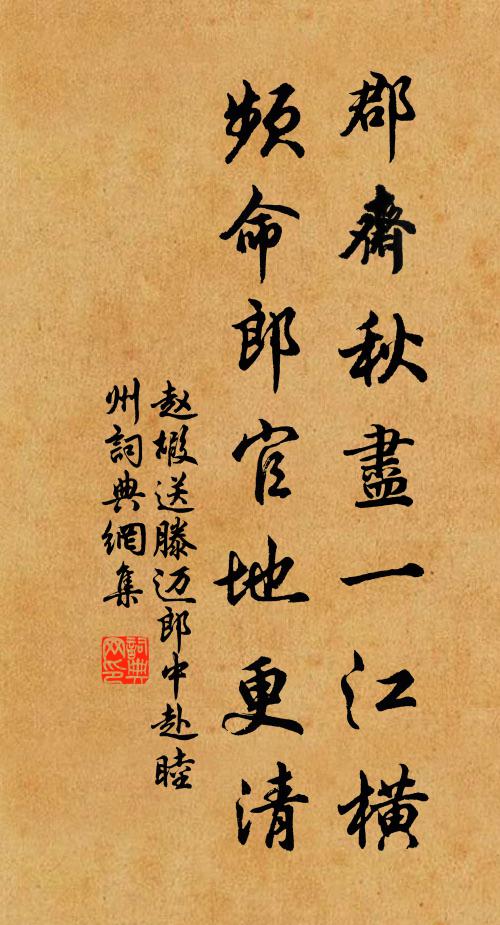 郡齋秋盡一江橫
頻命郎官地更清
赵嘏送滕迈郎中赴睦
州詞典網集
詞典
网印